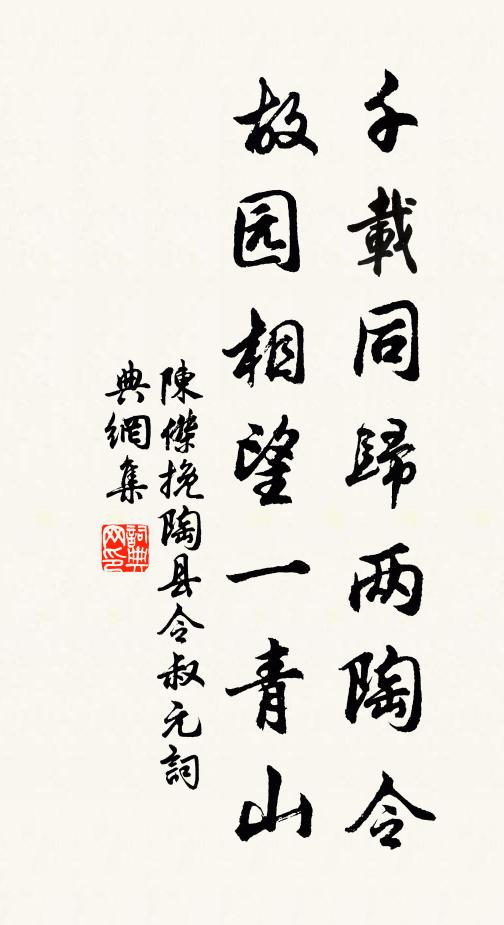 千載同歸两陶令
故园相望一青山
陳傑挽陶县令叔元詞
典網集
詞典网印